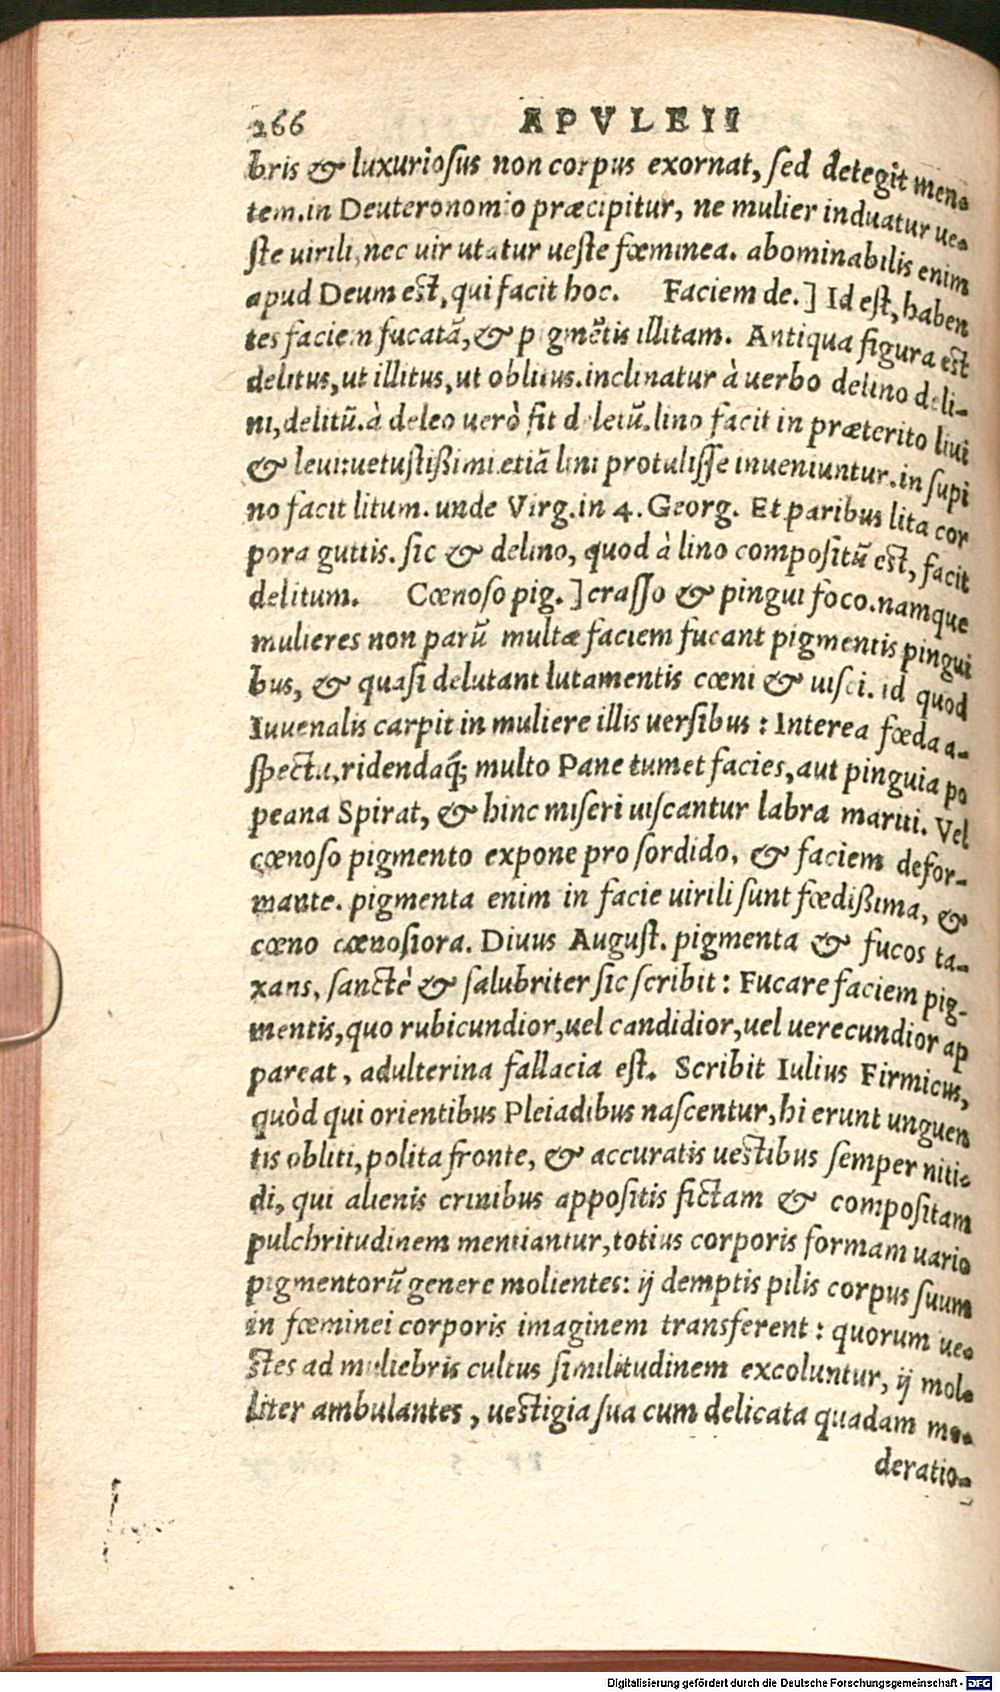 266 APVLEII
bris & luxuriosus non corpus exornat, sed detegit men-
tem. in Deuteronomio præcipitur, ne mulier induatur ue-
ste virili, nec uir utatur ueste fœminea. abominabilis enim
apud Deum est, qui facit hoc. Faciem de.] Id est, haben
tes faciem fucatā, & pigmētis illitam. Antiqua figura est
delitus, ut illitus, ut oblitus. inclinatur à uerbo delino deli-
ni, delitū. à deleo uerò fit deletū. lino facit in præterito liui
& leui: uetustißimi etiā lini protulisse inueniuntur. in supi
no facit litum. unde Virg. in 4. Georg. Et paribus lita cor
pora guttis. sic & delino, quod à lino compositū est, facit
delitum. Cœnoso pig.] crasso & pingui foco. namque
mulieres non parū multæ faciem fucant pigmentis pingui
bus, & quasi delutant lutamentis cœni & uisci. id quod
Iuuenalis carpit in muliere illis uersibus: Interea fœda a-
spectu, ridendaq́; multo Pane tumet facies, aut pinguia po
peana Spirat, & hinc miseri uiscantur labra mariti. Vel
cœnoso pigmento expone pro sordido, & faciem defor-
mante. pigmenta enim in facie uirili sunt fœdißima, &
cœno cœnosiora. Diuus August. pigmenta & fucos ta-
xans, sanctè & salubriter sic scribit: Fucare faciem pig-
mentis, quo rubicundior, uel candidior, uel uerecundior ap
pareat, adulterina fallacia est. Scribit Iulius Firmicus,
quòd qui orientibus Pleiadibus nascentur, hi erunt unguen
tis obliti, polita fronte, & accuratis uestibus semper niti-
di, qui alienis crinibus appositis fictam & compositam
pulchritudinem mentiantur, totius corporis formam uario
pigmentorū genere molientes: ij demptis pilis corpus suum
in fœminei corporis imaginem transferent: quorum ue-
stes ad muliebris cultus similitudinem excoluntur, ij mol-
liter ambulantes, uestigia sua cum delicata quadam mo-
deratio-
Digitalisierung gefördert durch die Deutsche Forschungsgemeinschaft - DFG